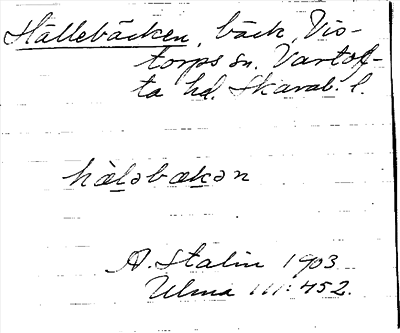 Hällebäcken, bäck, Vis-
torps sn. Vartof-
ta hd. Skarab. l.
hàl̠əbæk̠ən
A. Stalin 1903
Ulma 111:452.